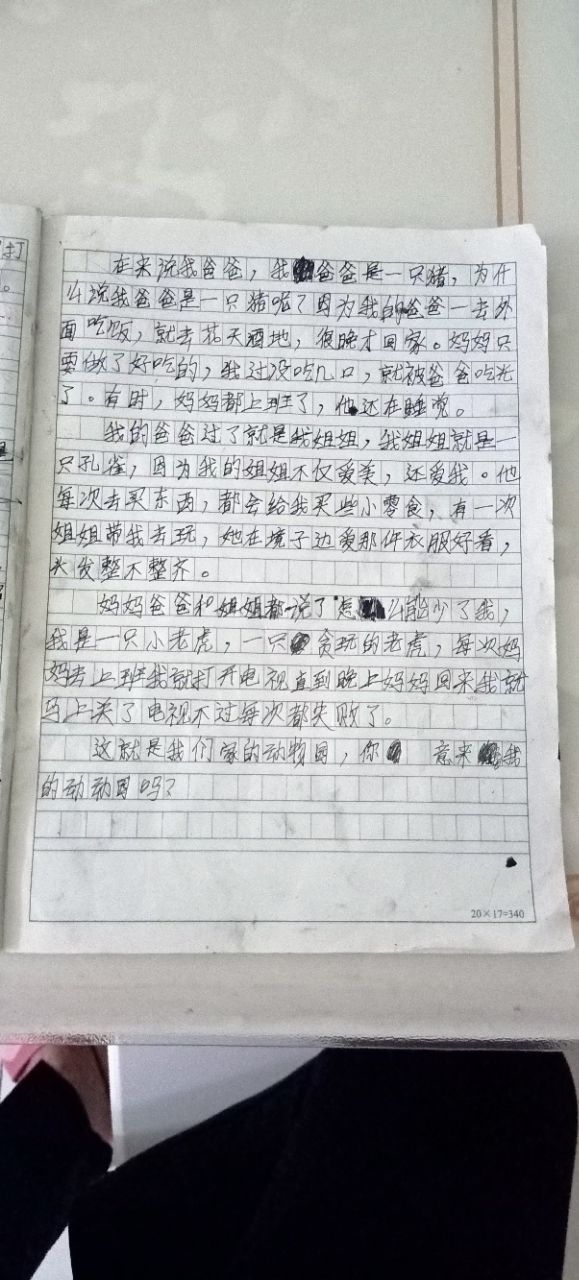 打
。
在来说我爸爸，我爸爸是一只猪，为什
么说我爸爸是一只猪呢？因为我的爸爸一去外
面吃饭，就去花天酒地，很晚才回家。妈妈只
要做了好吃的，我过没吃几口，就被爸爸吃光
了。有时，妈妈都上班了，他还在睡觉。
我的爸爸过了就是我姐姐，我姐姐就是一
只孔雀，因为我的姐姐不仅爱美，还爱我。他
每次去买东西，都会给我买些小零食，有一次
姐姐带我去玩，她在境子边爱那件衣服好看，
头发整不整齐。
妈妈爸爸和姐姐都说了怎么能少了我，
我是一只小老虎，一只贪玩的老虎，每次妈
妈去上班我就打开电视直到晚上妈妈回来我就
马上关了电视不过每次都失败了。
这就是我们家的动物园，你 意来我
的动动园吗？
20×17=340